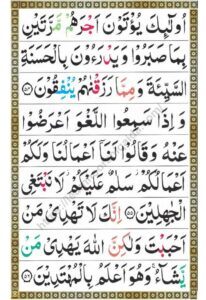 اُولٰٓئِكَ يُؤْتَوْنَ اَجْرَهُمْ مَّرَّتَيْنِ
بِمَا صَبَرُوْا وَيَدْرَءُوْنَ بِالْحَسَنَةِ
السَّيِّئَةَ وَمِمَّا رَزَقْنٰهُمْ يُنْفِقُوْنَ ۝۵۴
وَاِذَا سَمِعُوا اللَّغْوَ اَعْرَضُوْا
عَنْهُ وَقَالُوْا لَنَاۤ اَعْمَالُنَا وَلَكُمْ
اَعْمَالُكُمْ سَلٰمٌ عَلَيْكُمْ لَا نَبْتَغِى
الْجٰهِلِيْنَ ۝۵۵ اِنَّكَ لَا تَهْدِىْ مَنْ
اَحْبَبْتَ وَلٰكِنَّ اللّٰهَ يَهْدِىْ مَنْ
يَّشَآءُ وَهُوَ اَعْلَمُ بِالْمُهْتَدِيْنَ ۝۵۶